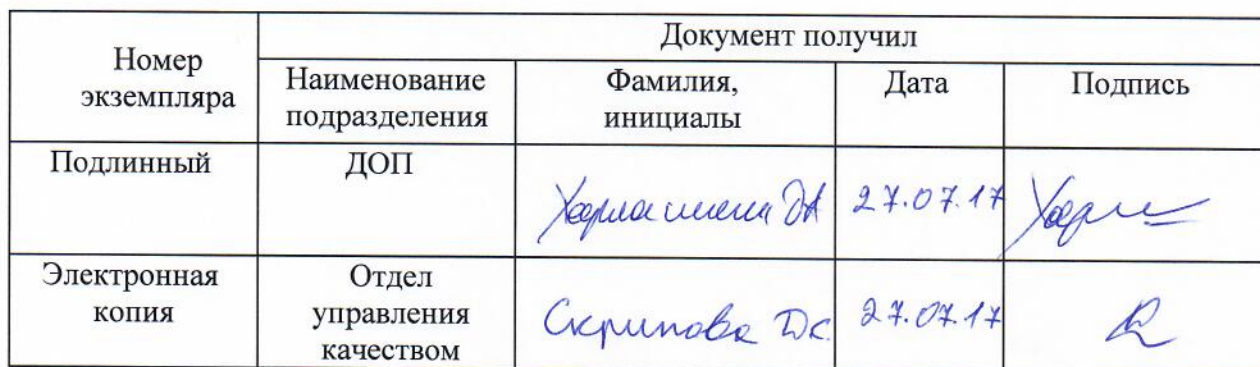 Номер экземпляра
Документ получил
Наименование подразделения
Фамилия, инициалы
Дата
Подпись
Подлинный
ДОП
27.07.17
Электронная копия
Отдел управления качеством
Скрипова
27.07.17